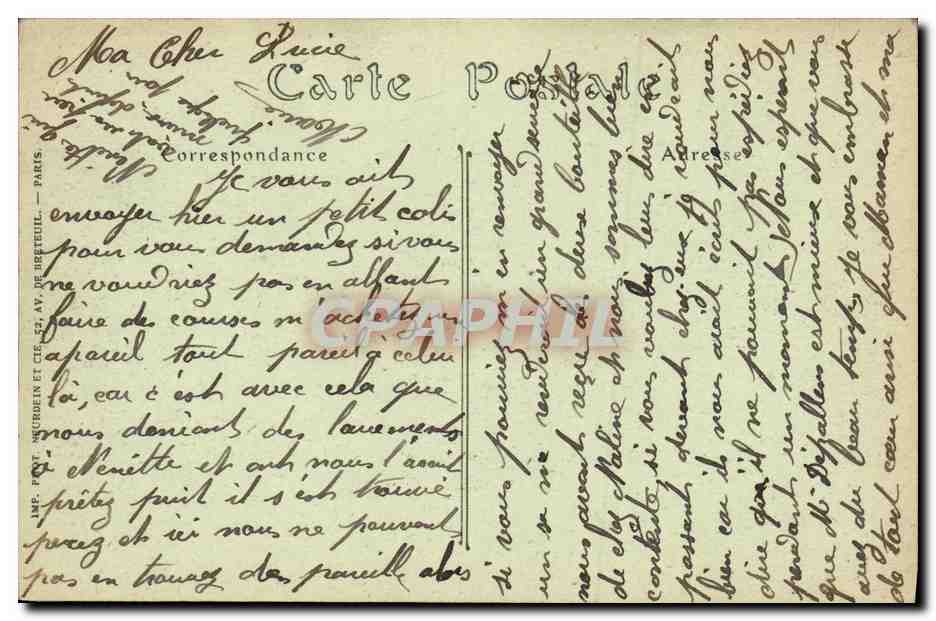 Ma Cher Lucie
Carte Postale
Correspondance
Adresse
Je vous ait
envoyer hier un petit colis
pour vous demandez si vous
ne voudriez pas en allant
faire des courses m'achetez un
apareil tout pareil à celui
là, car c'est avec cela que
nous doniont des lavements
à Nénette et ont nous l'avait
prêtez puit il s'est trouvé
percez et ici nous ne pouvont
pas en trouvez des pareille alors
si vous pourriez m'en renvoyer
un sa me rendrait bien grand service
nous avont reçu de deux bouteilles
de chez Maline et nous sommes bien
contente si vous voulez leurs dire en
passant devant chez eux it faudrait
bien car ils nous avait écris pour nous
dire qu'il ne pouvait pas expédiez
pendant un moment Nous esperont
que Mr Dézallens est mieux et que vous
avez du beau temps je vous embrasse
de tout cœur ainsi que Maman et ma
Marie
IMP. PHOT. NEURDEIN ET CIE. 52, AV. DE BRETEUIL. — PARIS.
CPAPHIL